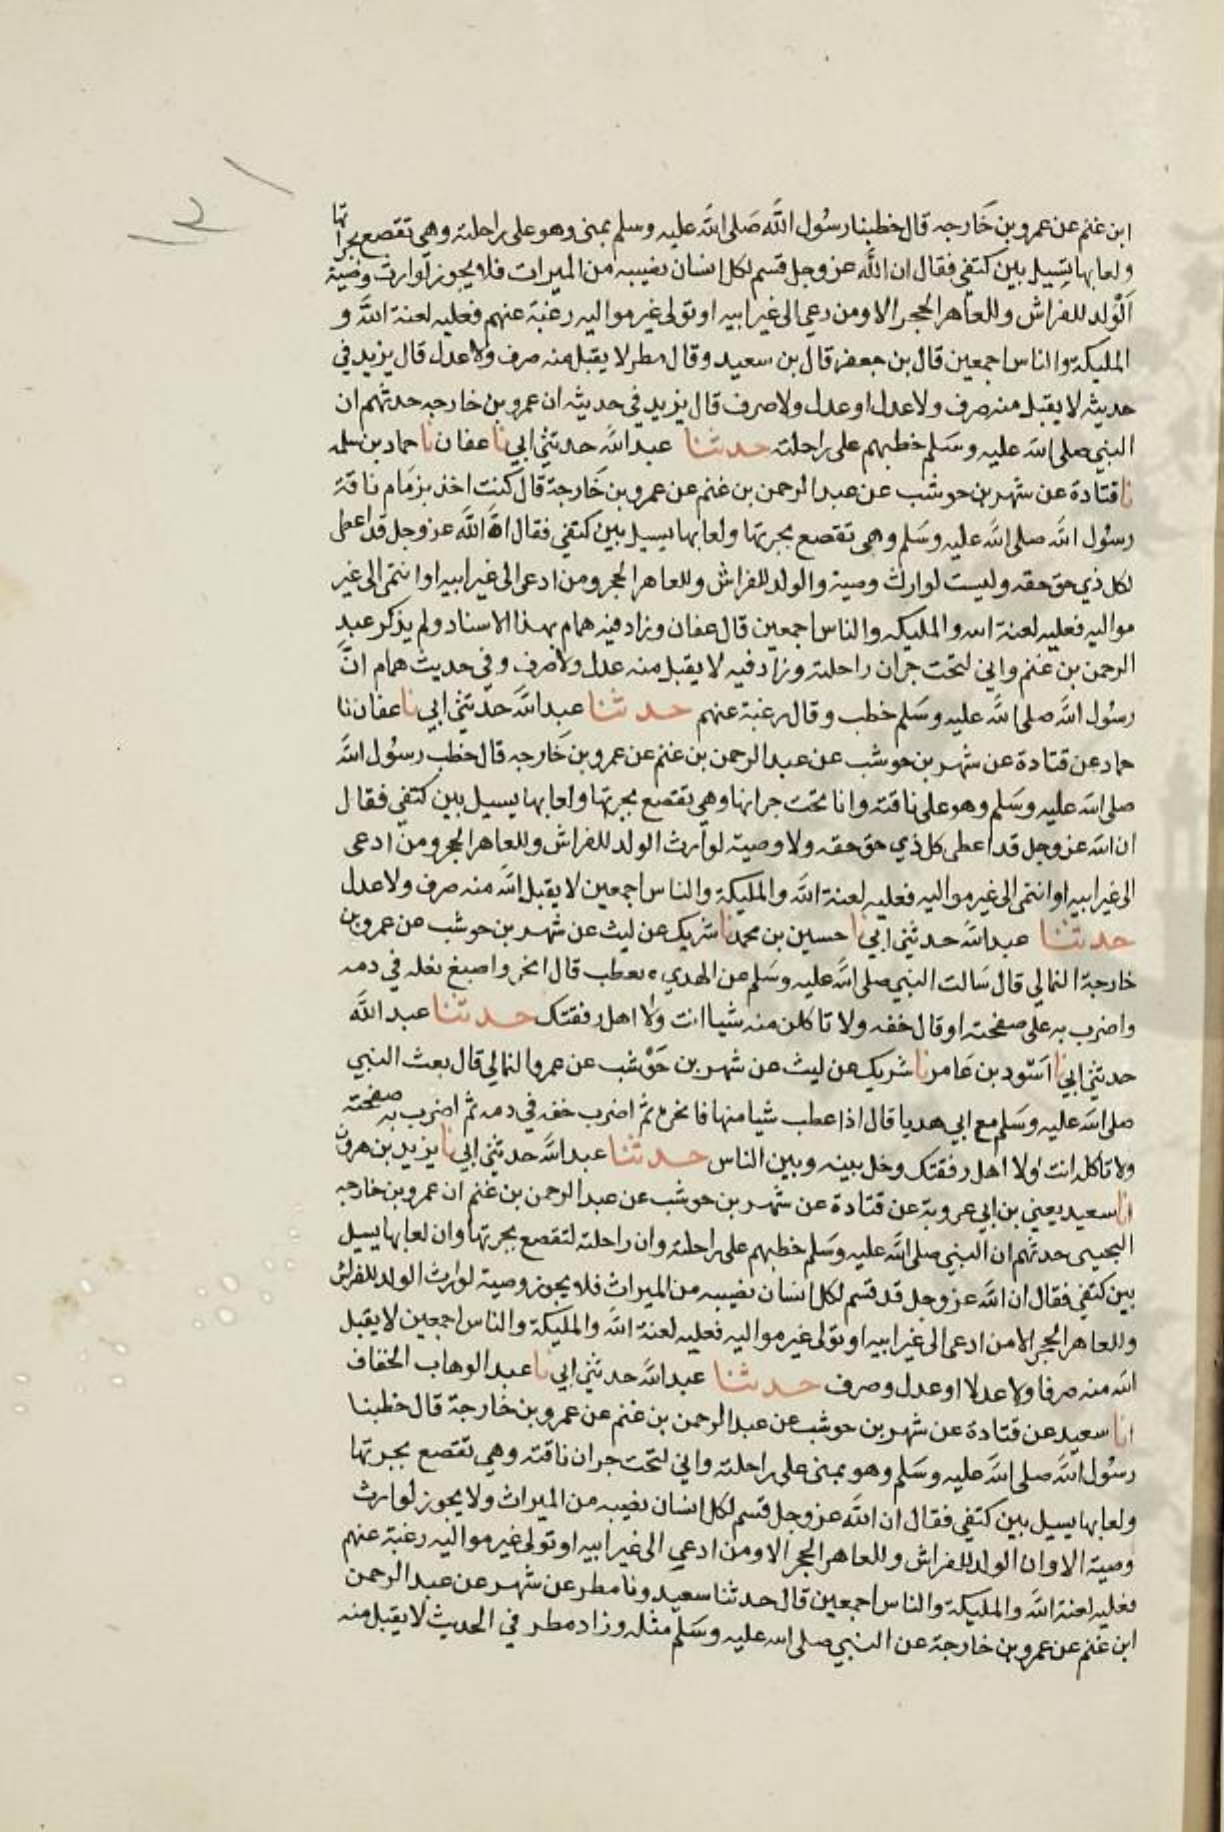 ابن غنم عن عمرو بن خارجه قال خطبنا رسول الله صلى الله عليه وسلم بمنى وهو على راحلته وهي تقصع بجراتها
ولعابها يسيل بين كتفي فقال ان الله عز وجل قسم لكل انسان نصيبه من الميراث فلا يجوز لوارث وصية
الولد للفراش وللعاهر الحجر الا ومن دعي الى غير ابيه او تولى غير مواليه رغبة عنهم فعليه لعنة الله و
المليكة والناس اجمعين قال بن جعفر قال بن سعيد وقال مطر لا يقبل منه صرف ولا عدل قال يزيد في
حديثه لا يقبل منه صرف ولا عدل او عدل ولا صرف قال يزيد في حديثه ان عمرو بن خارجه حدثهم ان
النبي صلى الله عليه وسلم خطبهم على راحلته حدثنا عبد الله حدثني ابي نا عفان نا حماد بن سلمه
نا قتادة عن شهر بن حوشب عن عبد الرحمن بن غنم عن عمرو بن خارجة قال كنت اخذ بزمام ناقة
رسول الله صلى الله عليه وسلم وهي تقصع بجرتها ولعابها يسيل بين كتفي فقال ان الله عز وجل قد اعطى
لكل ذي حق حقه وليست لوارث وصية والولد للفراش وللعاهر الحجر ومن ادعى الى غير ابيه او انتمى الى غير
مواليه فعليه لعنة الله والمليكه والناس اجمعين قال عفان وزاد فيه همام بهذا الاسناد ولم يذكر عبد
الرحمن بن غنم واني لتحت جران راحلته وزاد فيه لا يقبل منه عدل ولا صرف وفي حديث همام ان
رسول الله صلى الله عليه وسلم خطب وقال رغبة عنهم حدثنا عبد الله حدثني ابي نا عفان نا
حماد عن قتادة عن شهر بن حوشب عن عبد الرحمن بن غنم عن عمرو بن خارجه قال خطب رسول الله
صلى الله عليه وسلم وهو على ناقته وانا تحت جرانها وهي تقصع بجرتها ولعابها يسيل بين كتفي فقال
ان الله عز وجل قد اعطى كل ذي حق حقه ولا وصية لوارث الولد للفراش وللعاهر الحجر ومن ادعى
الى غير ابيه او انتمى الى غير مواليه فعليه لعنة الله والمليكة والناس اجمعين لا يقبل الله منه صرف ولا عدل
حدثنا عبد الله حدثني ابي نا حسين بن محمد نا شريك عن ليث عن شهر بن حوشب عن عمرو بن
خارجة الثمالي قال سالت النبي صلى الله عليه وسلم عن الهدي يعطب قال انحر واصبغ نعله في دمه
واضرب به على صفحته او قال خفه ولا تاكلن منه شيا انت ولا اهل رفقتك حدثنا عبد الله
حدثني ابي نا اسود بن عامر نا شريك عن ليث عن شهر بن حوشب عن عمرو الثمالي قال بعث النبي
صلى الله عليه وسلم مع ابي هديا قال اذا عطب شيا منها فانحره ثم اضرب خفه في دمه ثم اضرب به صفحته
ولا تاكله انت ولا اهل رفقتك وخل بينه وبين الناس حدثنا عبد الله حدثني ابي نا يزيد بن هرون
انا سعيد يعني بن ابي عروبة عن قتادة عن شهر بن حوشب عن عبد الرحمن بن غنم ان عمرو بن خارجه
حدثهم ان النبي صلى الله عليه وسلم خطبهم على راحلته وان راحلته لتقصع بجرتها وان لعابها يسيل
بين كتفي فقال ان الله عز وجل قد قسم لكل انسان نصيبه من الميراث فلا يجوز وصية لوارث الولد للفراش
وللعاهر الحجر الا من ادعى الى غير ابيه او تولى غير مواليه فعليه لعنة الله والمليكة والناس اجمعين لا يقبل
الله منه صرفا ولا عدلا او عدل وصرف حدثنا عبد الله حدثني ابي نا عبد الوهاب الخفاف
انا سعيد عن قتادة عن شهر بن حوشب عن عبد الرحمن بن غنم عن عمرو بن خارجة قال خطبنا
رسول الله صلى الله عليه وسلم وهو بمنى على راحلته واني لتحت جران ناقته وهي تقصع بجرتها
ولعابها يسيل بين كتفي فقال ان الله عز وجل قسم لكل انسان نصيبه من الميراث ولا يجوز لوارث
وصية الا وان الولد للفراش وللعاهر الحجر الا ومن ادعي الى غير ابيه او تولى غير مواليه رغبة عنهم
فعليه لعنة الله والمليكة والناس اجمعين قال حدثنا سعيد ونا مطر عن شهر عن عبد الرحمن
ابن غنم عن عمرو بن خارجة عن النبي صلى الله عليه وسلم مثله وزاد مطر في الحديث لا يقبل منه